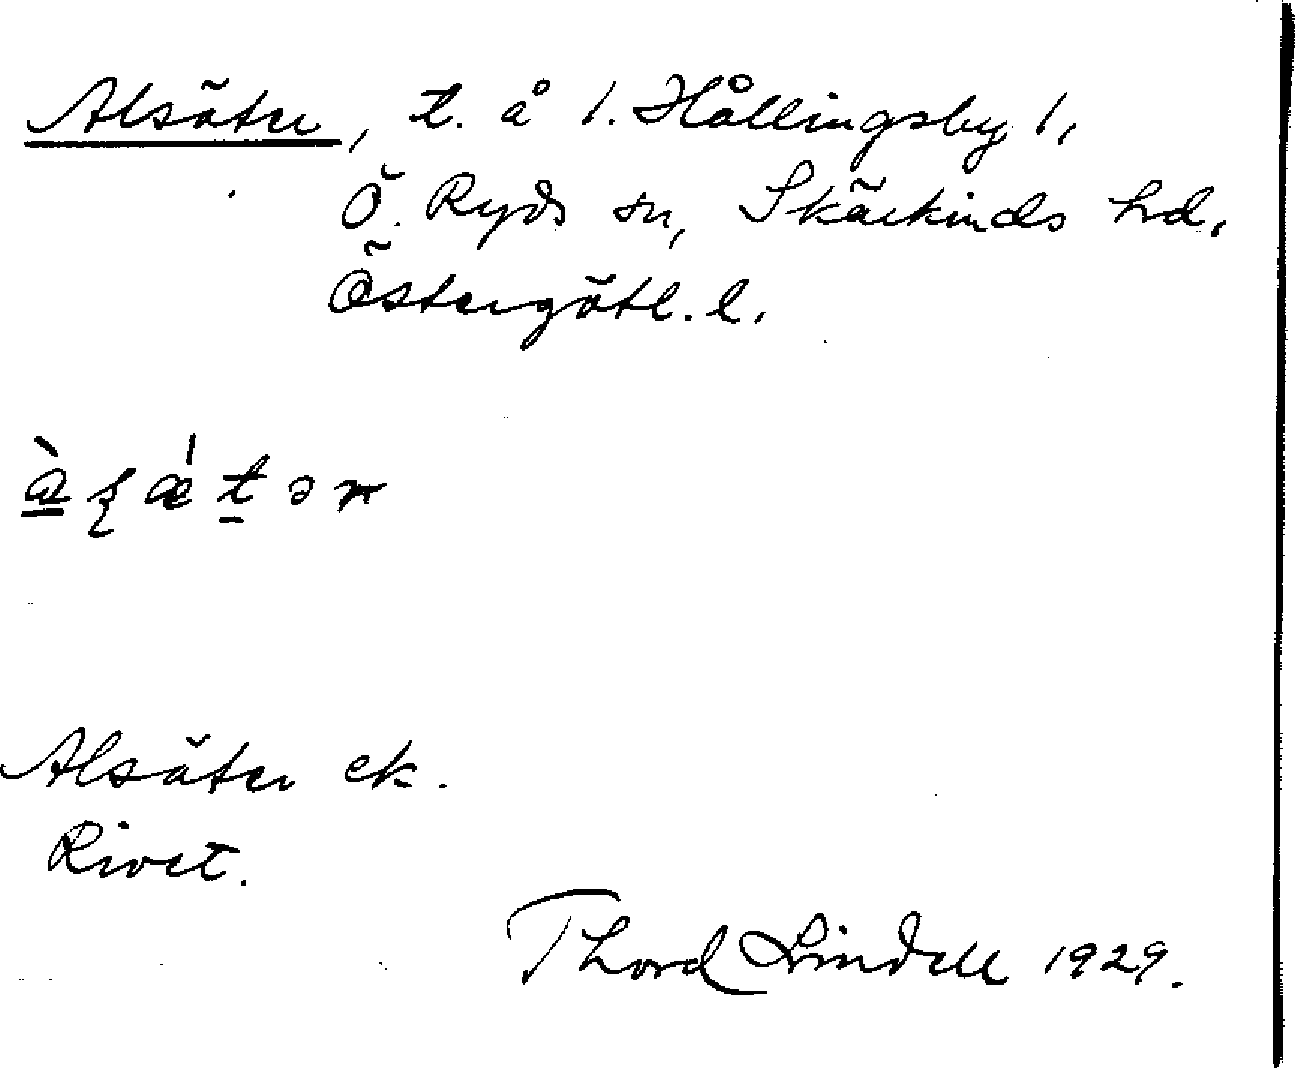 Alsäter, t. å 1. Hållingsby 1,
Ö. Ryds sn, Skärkinds hd.
Östergötl. l.
Alsäter ek.
Rivet.
Thord Lindell 1929.